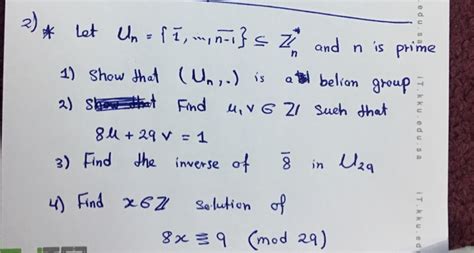 2) * Let Uₙ = {1̄, ..., n-1} ⊆ ℤₙ* and n is prime
1) Show that (Uₙ, .) is a belian group
2) Find u, v ∈ ℤ such that
8u + 29v = 1
3) Find the inverse of 8̄ in U₂₉
4) Find x ∈ ℤ solution of
8x ≡ 9 (mod 29)
edu.sa
iT.kku.edu.sa
iT.kku.ed